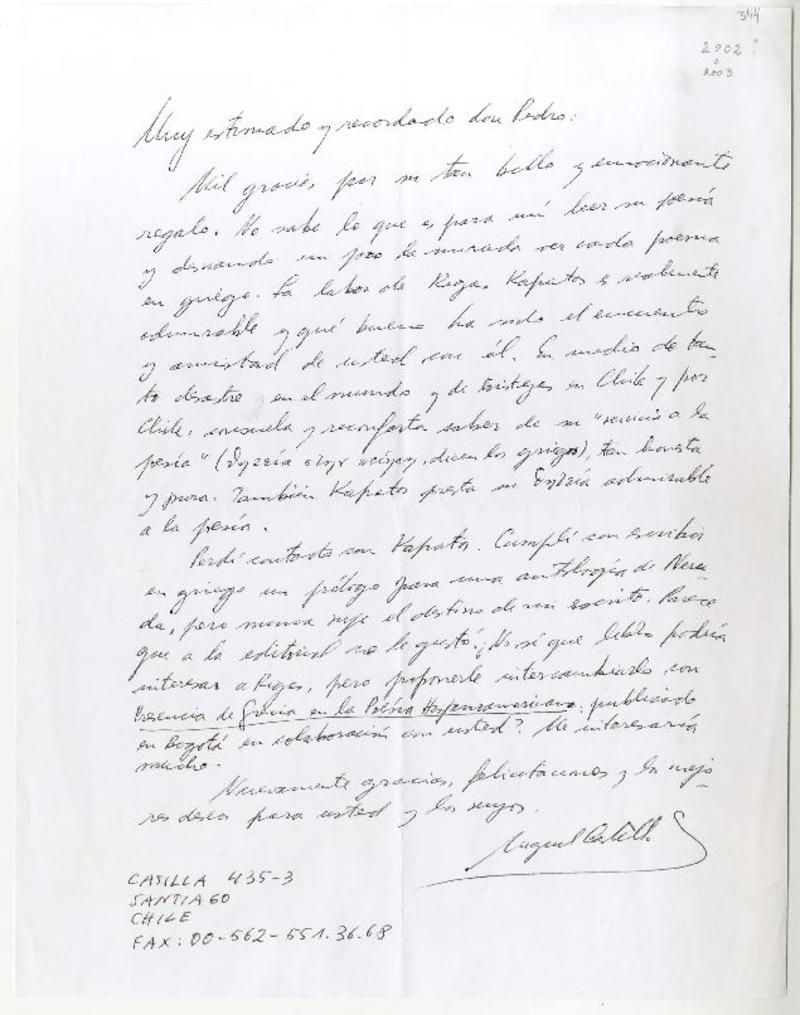 344
2002 ?
o
2003
Muy estimado y recordado don Pedro:
Mil gracias por su tan bello y emocionante
regalo. No sabe lo que es para mí leer su poesía
y desviando un poco la mirada ver cada poema
en griego. La labor de Rigas Kapatos es realmente
admirable y qué bueno ha sido el encuentro
y amistad de usted con él. En medio de tan-
to desastre en el mundo y de tristezas en Chile y por
Chile, consuela y reconforta saber de su "servicio a la
poesía" ( , dicen los griegos), tan honesta
y pura. También Kapatos presta su admirable
a la poesía.
Perdí contacto con Kapatos. Cumplí con escribir
en griego un prólogo para una antología de Neru-
da, pero nunca supe el destino de mi escrito. Parece
que a la editorial no le gustó. ¿No sé que libro podría
interesar a Rigas, pero proponerle intercambiarlo con
Presencia de Grecia en la Poesía Hispanoamericana, publicado
en Bogotá en colaboración con usted? Me interesaría
mucho.
Nuevamente gracias, felicitaciones y los mejo-
res deseos para usted y los suyos.
Miguel Castillo
CASILLA 435-3
SANTIAGO
CHILE
FAX: 00-562-551.36.68